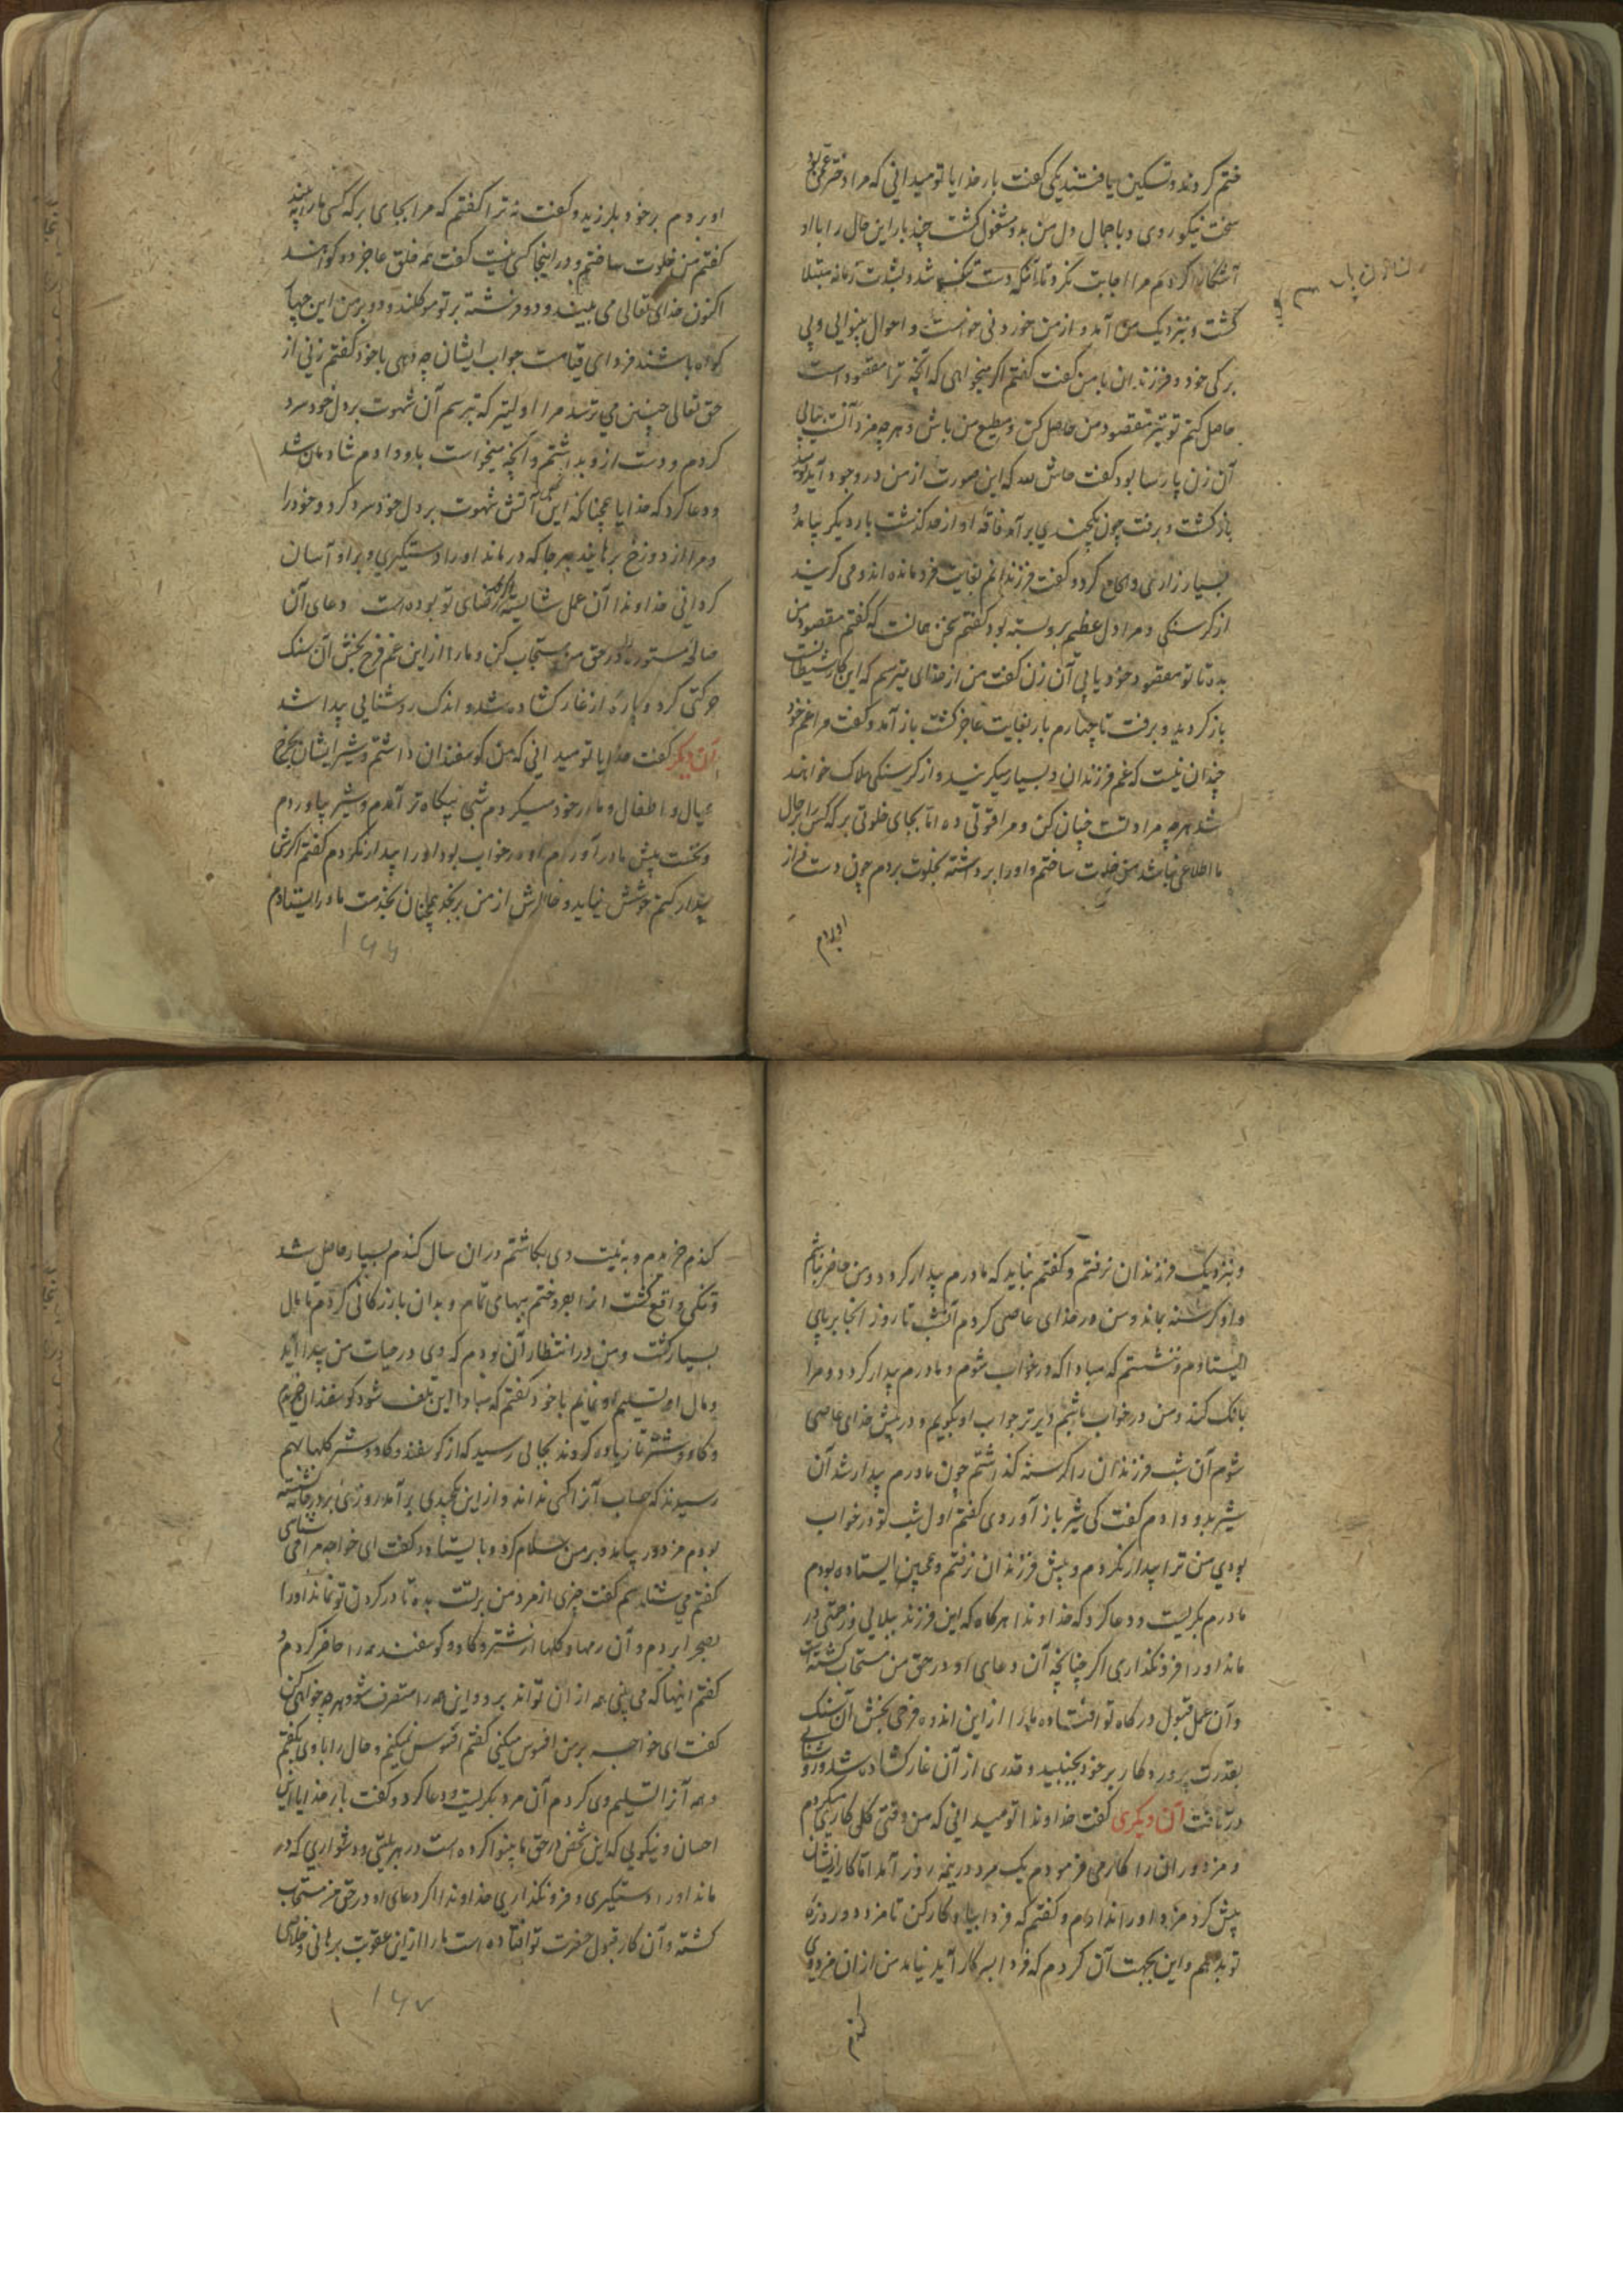 ختم کردند و تسکین یافتند یکی گفت بار خدایا تو میدانی که مرا دختر عمی بود
سخت نیکو روی و با جمال دل من بدو مشغول گشت چند بار این حال را با او
آشکارا کردم مرا اجابت نکرد تا آنکه دست تنگ شد و بشدت زمانه مبتلا
گشت و بنزدیک من آمد و از من خوردنی خواست و احوال بینوایی و بی
برگی خود و فرزندان با من گفت گفتم اگر میخواهی که آنچه ترا مقصود است
حاصل کنم تو نیز مقصود من حاصل کن و مطیع من باش و هرچه مراد آنست بیابی
آن زن پارسا بود گفت حاش لله که این صورت از من در وجود آید نومید
بازگشت و برفت چون یکچندی برآمد فاقه او از حد گذشت بار دیگر بیامد و
بسیار زاری و الحاح کرد و گفت فرزندانم بغایت فرو مانده اند و می گریند
از گرسنگی و مرا دل عظیم برو بسته بود گفتم سخن همانست که گفتم مقصود من
بده تا تو مقصود خود یابی آن زن گفت من از خدای میترسم که این کار شیطانست
باز گردید و برفت تا چهارم بار بغایت عاجز گشت باز آمد و گفت مرا غم خود
چندان نیست که غم فرزندان و بسیار میگریند و از گرسنگی هلاک خواهند
شد هرچه مرادتست چنان کن و مرا قوتی ده اما بجای خلوتی بر که کس را بر حال
ما اطلاعی نباشد من خلوت ساختم و او را برداشته بخلوت بردم چون دست فراز
اوردم
اوردم برخود بلرزید و گفت نه ترا گفتم که مرا بجای بر که کسی ما را نه بیند
گفتم من خلوت ساختم و در اینجا کسی نیست گفت همه خلق عاجز دو گواهند
اکنون خدای تعالی می بیند و دو فرشته بر تو موکلند و دو بر من این چهار
گواه باشند فردای قیامت جواب ایشان چه دهی با خود گفتم زنی از
حق تعالی چنین می ترسد مرا اولیتر که بترسم آن شهوت بر دل خود سرد
کردم و دست از و بداشتم و آنچه میخواست باو دادم شادمان شد
و دعا کرد که خدایا همچنانکه این آتش شهوت بر دل خود سرد کرد و خود را
و مرا از دوزخ برهانید هر جا که در ماند او را دستگیری و بر او آسان
گردانی خداوندا آن عمل شایسته اگر رضای تو بوده است و دعای آن
صالحه مستوره در حق من مستجاب کن و ما را از این غم فرح بخش آن سنگ
حرکتی کرد و پاره از غار گشاده شد و اندک روشنایی پیدا شد
آن دیگر گفت خدایا تو میدانی که من گوسفندان داشتم و شیر ایشان بخرج
عیال و اطفال و مادر خود میکردم شبی بیگاه تر آمدم و شیر بیاوردم
و نخست پیش مادر آوردم او در خواب بود او را بیدار نکردم گفتم اگرش
بیدار کنم خوشش نیاید و خاطرش از من برنجد همچنان بخدمت مادر ایستادم
۱۶۶
و بنزدیک فرزندان نرفتم و گفتم نباید که مادرم بیدار گردد و من حاضر نباشم
و او گرسنه بماند و من در خدای عاصی گردم آن شب تا روز انجا بر پای
ایستادم و ننشستم که مبادا که در خواب شوم و مادرم بیدار گردد و مرا
بانگ کند و من در خواب باشم دیرتر جواب او بگویم و در پیش خدای عاصی
شوم آن شب فرزندان را گرسنه گذاشتم چون مادرم بیدار شد آن
شیر بدو دادم گفت کی شیر باز آوردی گفتم اول شب تو در خواب
بودی من ترا بیدار نکردم و پیش فرزندان نرفتم و همچنین ایستاده بودم
مادرم بگریست و دعا کرد که خداوندا هر گاه که این فرزند ببلایی و زحمتی در
ماند او را فرو نگذاری اگر چنانچه آن دعای او در حق من مستجاب گشته است
و آن عمل قبول درگاه تو افتاده ما را از این اندوه فرحی بخش آن سنگ
بقدرت پروردگار برخود بجنبید و قدری از آن غار گشاده شد و روشنایی
در تافت آن دیگری گفت خداوندا تو میدانی که من وقتی گلی کاری میکردم
و مزدوران را کار می فرمودم یک مرد در نیمه روز آمد اما کار از ایشان
پیش کرد مزد او را ندادم و گفتم که فردا بیا و کار کن تا مزد دو روزه
تو بدهم و این بجهت آن کردم که فردا بسر کار آید نیامد من از ان مزد وی
گندم
گندم خریدم و به نیت وی بکاشتم دران سال گندم بسیار حاصل شد
و تنگی واقع گشت انرا بفروختم ببهای تمام و بدان بازرگانی کردم تا مال
بسیار گشت و من در انتظار آن بودم که وی در حیات من پیدا آید
و مال او تسلیم او نمایم با خود گفتم که مبادا این تلف شود گوسفندان خریدم
و گاو و شتر تا زیاده گردند بجایی رسید که از گوسفند و گاو و شتر گلها بهم
رسیدند که حساب آنرا کسی نداند و از این یکچندی برآمد روزی بر در خانه نشسته
بودم مزدور بیامد و بر من سلام کرد و بایستاد و گفت ای خواجه مرا می شناسی
گفتم می شناسم گفت چیزی از مزد من بر تست بده تا در گردن تو نماند او را
بصحرا بردم و آن رمها و گلها از شتر و گاو و گوسفند همه را حاضر کردم و
گفتم اینها که می بینی همه از ان تواند برو و این همه را متصرف شو و هرچه خواهی کن
گفت ای خواجه بر من افسوس میکنی گفتم افسوس نمیکنم و حال را با وی بگفتم
و همه آنرا تسلیم وی کردم آن مرد بگریست و دعا کرد و گفت بار خدایا این
احسان و نیکویی که این شخص در حق ما بینوا کرده است در هر بلیتی و دشواری که در
ماند او را دستگیری و فرو نگذاری خداوندا اگر دعای او در حق من مستجاب
گشته و آن کار قبول حضرت تو افتاده است ما را از این عقوبت برهانی و خلاصی
۱۶۷